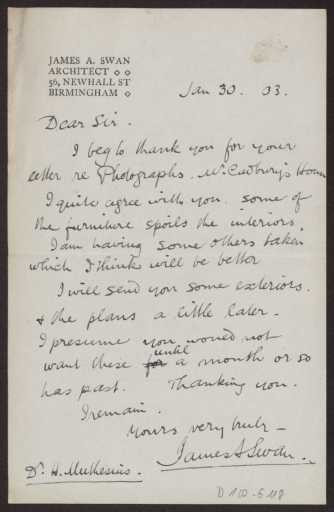 JAMES A. SWAN
ARCHITECT
56, NEWHALL ST
BIRMINGHAM
Jan 30. 03.
Dear Sir.
I beg to thank you for your
letter re Photographs. Mr. Cadbury's House
I quite agree with you. some of
the furniture spoils the interiors.
I am having some others taken
which I think will be better
I will send you some exteriors.
& the plans a little later.
I presume you would not
want these until a month or so
has past. Thanking you.
I remain.
Yours very truly
James A Swan.
Dr. H. Muthesius.
D 102-5118